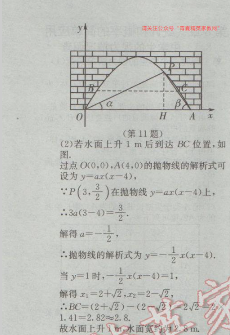 y
P
B
C
α
β
O
H
A
x
(第11题)
(2)若水面上升1 m后到达BC位置,如
图,
过点O(0,0),A(4,0)的抛物线的解析式可
设为y=ax(x-4),
∵P(3,3/2)在抛物线y=ax(x-4)上,
∴3a(3-4)=3/2.
解得a=-1/2,
∴抛物线的解析式为y=-1/2x(x-4).
当y=1时,-1/2x(x-4)=1,
解得x₁=2+√2,x₂=2-√2,
∴BC=(2+√2)-(2-√2)=2√2=2×
1.41=2.82≈2.8.
故水面上升1 m,水面宽约为2.8 m.